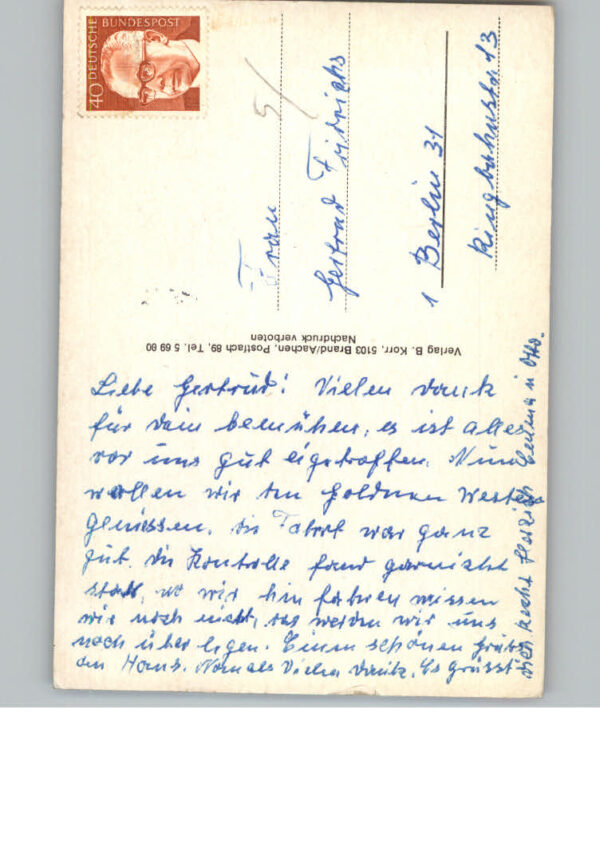 DEUTSCHE BUNDESPOST
40
5/
Frau
Gertrud Fridrichs
1 Berlin 31
Ringbahnstr 13
Verlag B. Korr, 5103 Brand/Aachen, Postfach 89, Tel. 5 69 60
Nachdruck verboten
Liebe Gertrud! Vielen Dank
für dein bemühen, es ist alles
vor uns gut eigetroffen. Nun
wollen wir den Goldnen Westen
Geniessen, die Fahrt war ganz
gut. die Kontrolle fand garnicht
statt, wo wir hin fahren wissen
wir noch nicht, das werden wir uns
noch über legen. Einen schönen Gruß
an Hans. Nomals Vielen Dank. Es grüsst
dich Heinrich u Otto.